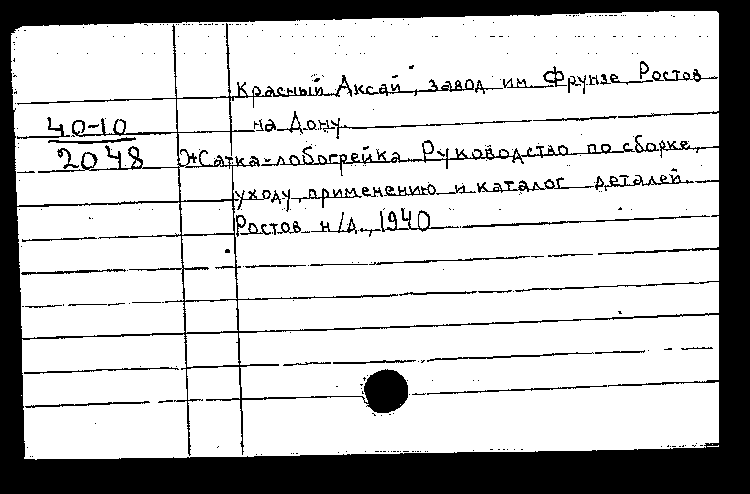 "Красный Аксай", завод им. Фрунзе Ростов
на Дону.
40-10
2048
Жатка-лобогрейка Руководство по сборке,
уходу, применению и каталог деталей.
Ростов н/Д., 1940